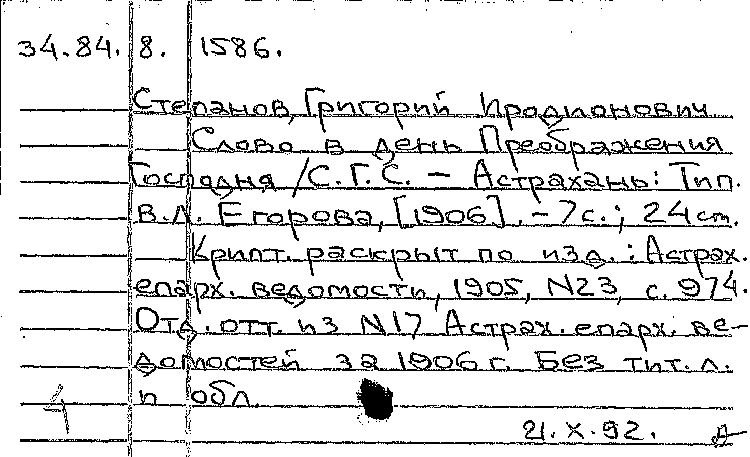 34.84.8. 1586.
Степанов, Григорий Иродионович
Слово в день Преображения
Господня / С.Г.С. - Астрахань: Тип.
В.Л. Егорова, [1906]. - 7 с.; 24 см.
Крипт. раскрыт по изд.: Астрах.
епарх. ведомости, 1905, N23, с. 974.
Отд. отт. из N17 Астрах. епарх. ве-
домостей за 1906 г. Без тит. л.
и обл.
4
21.X.92.